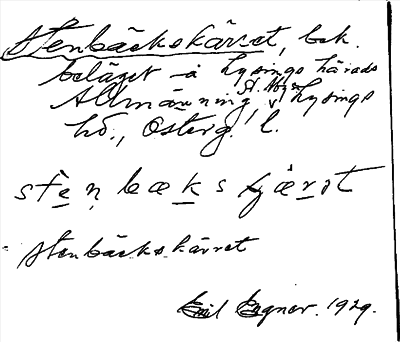 Stenbäckskärret, bek.
beläget å Lysings härads
St. Åby
Allmänning, Lysings
hd., Österg. l.
stenbækskjærət
Stenbäckskärret
Emil Egner. 1929.